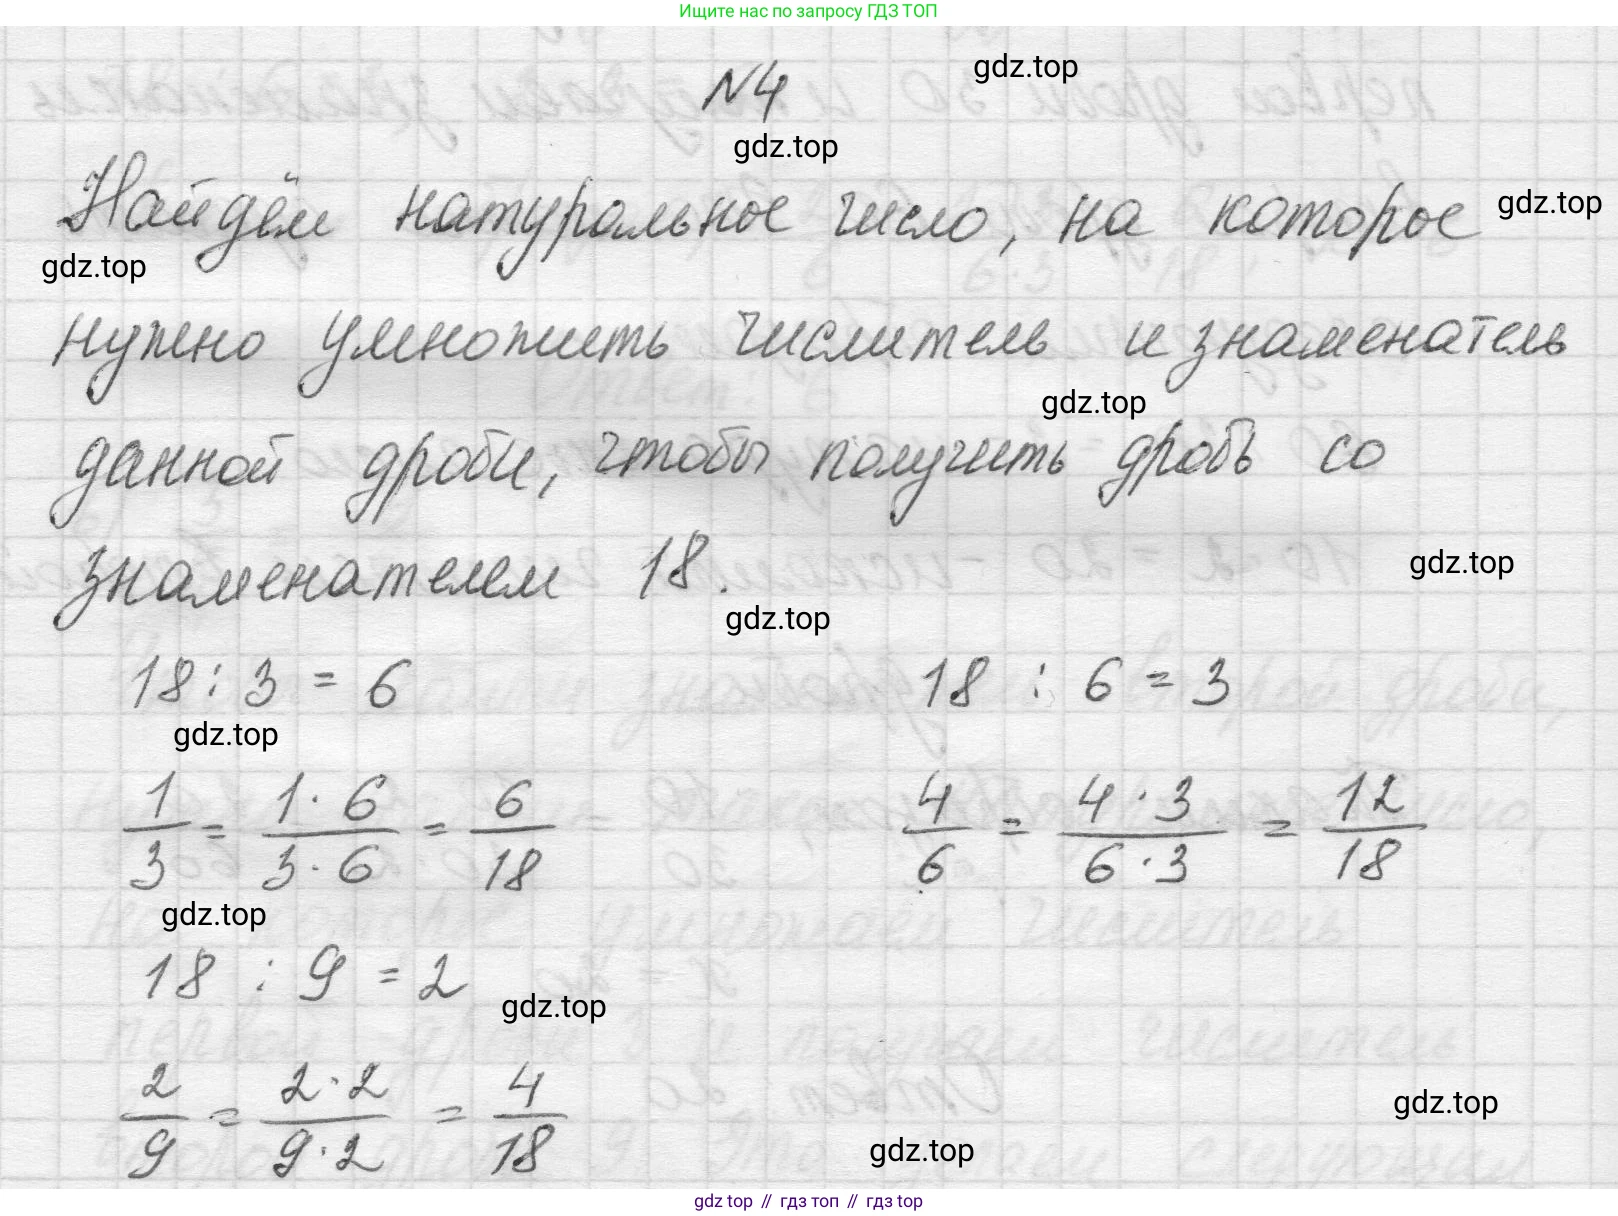 Ищите нас по запросу ГДЗ ТОП
№4
gdz.top
gdz.top
Найдём натуральное число, на которое
gdz.top
gdz.top
нужно умножить числитель и знаменатель
gdz.top
данной дроби, чтобы получить дробь со
знаменателем 18.
gdz.top
gdz.top
18 : 3 = 6
18 : 6 = 3
gdz.top
1/3 = 1·6/3·6 = 6/18
4/6 = 4·3/6·3 = 12/18
gdz.top
18 : 9 = 2
gdz.top
2/9 = 2·2/9·2 = 4/18
gdz.top
gdz.top
gdz top // гдз топ // гдз top